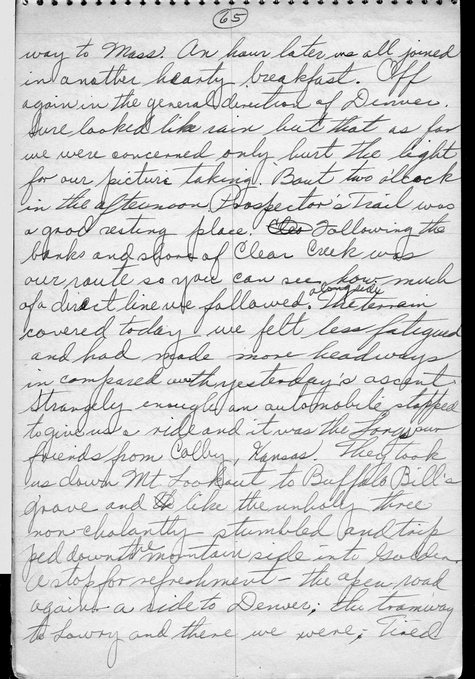 65
way to Mass. An hour later we all joined
in another hearty breakfast. Off
again in the general direction of Denver.
Sure looked like rain but that as far
we were concerned only hurt the light
for our picture taking. Bout two oclock
in the afternoon Prospector's Trail was
a good resting place. Cleo Following the
banks and shore of Clear Creek was
our route so you can see how much
of a direct line we followed. alongside The terrain
covered today we felt less fatigued
and had made more headways
in compared with yesterday's ascent.
Strangely enough, an automobile stopped
to give us a ride and it was the Longs our
friends from Colby, Kansas. They took
us down Mt Lookout to Buffalo Bill's
grave and like the unholy three
non-chalantly stumbled and trip
ped down the mountain side into Golden.
A stop for refreshment - the open road
again - a ride to Denver; the tramway
to Lowry and there we were; Tired